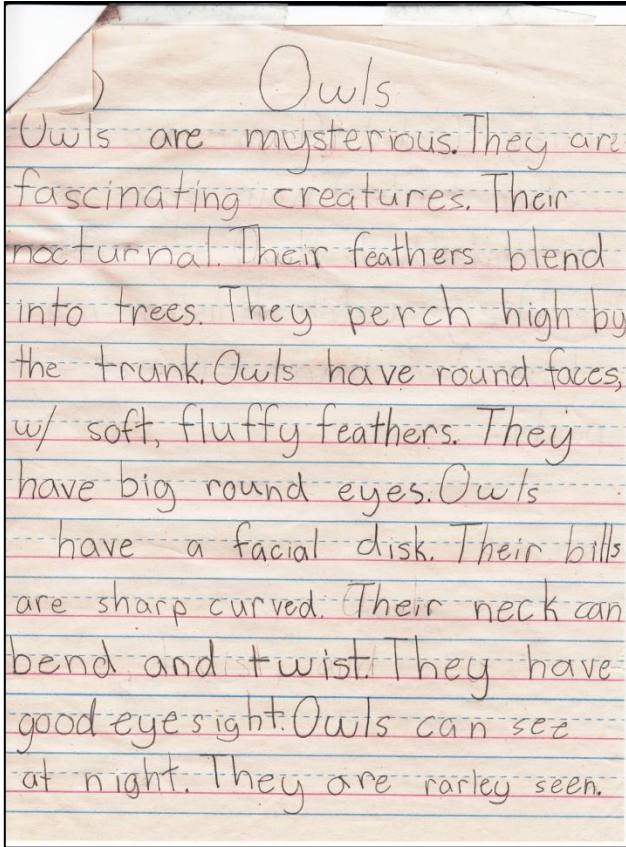 Owls
Owls are mysterious. They are
fascinating creatures. Their
nocturnal. Their feathers blend
into trees. They perch high by
the trunk. Owls have round faces,
w/ soft, fluffy feathers. They
have big round eyes. Owls
have a facial disk. Their bills
are sharp curved. Their neck can
bend and twist. They have
good eyesight. Owls can see
at night. They are rarley seen.